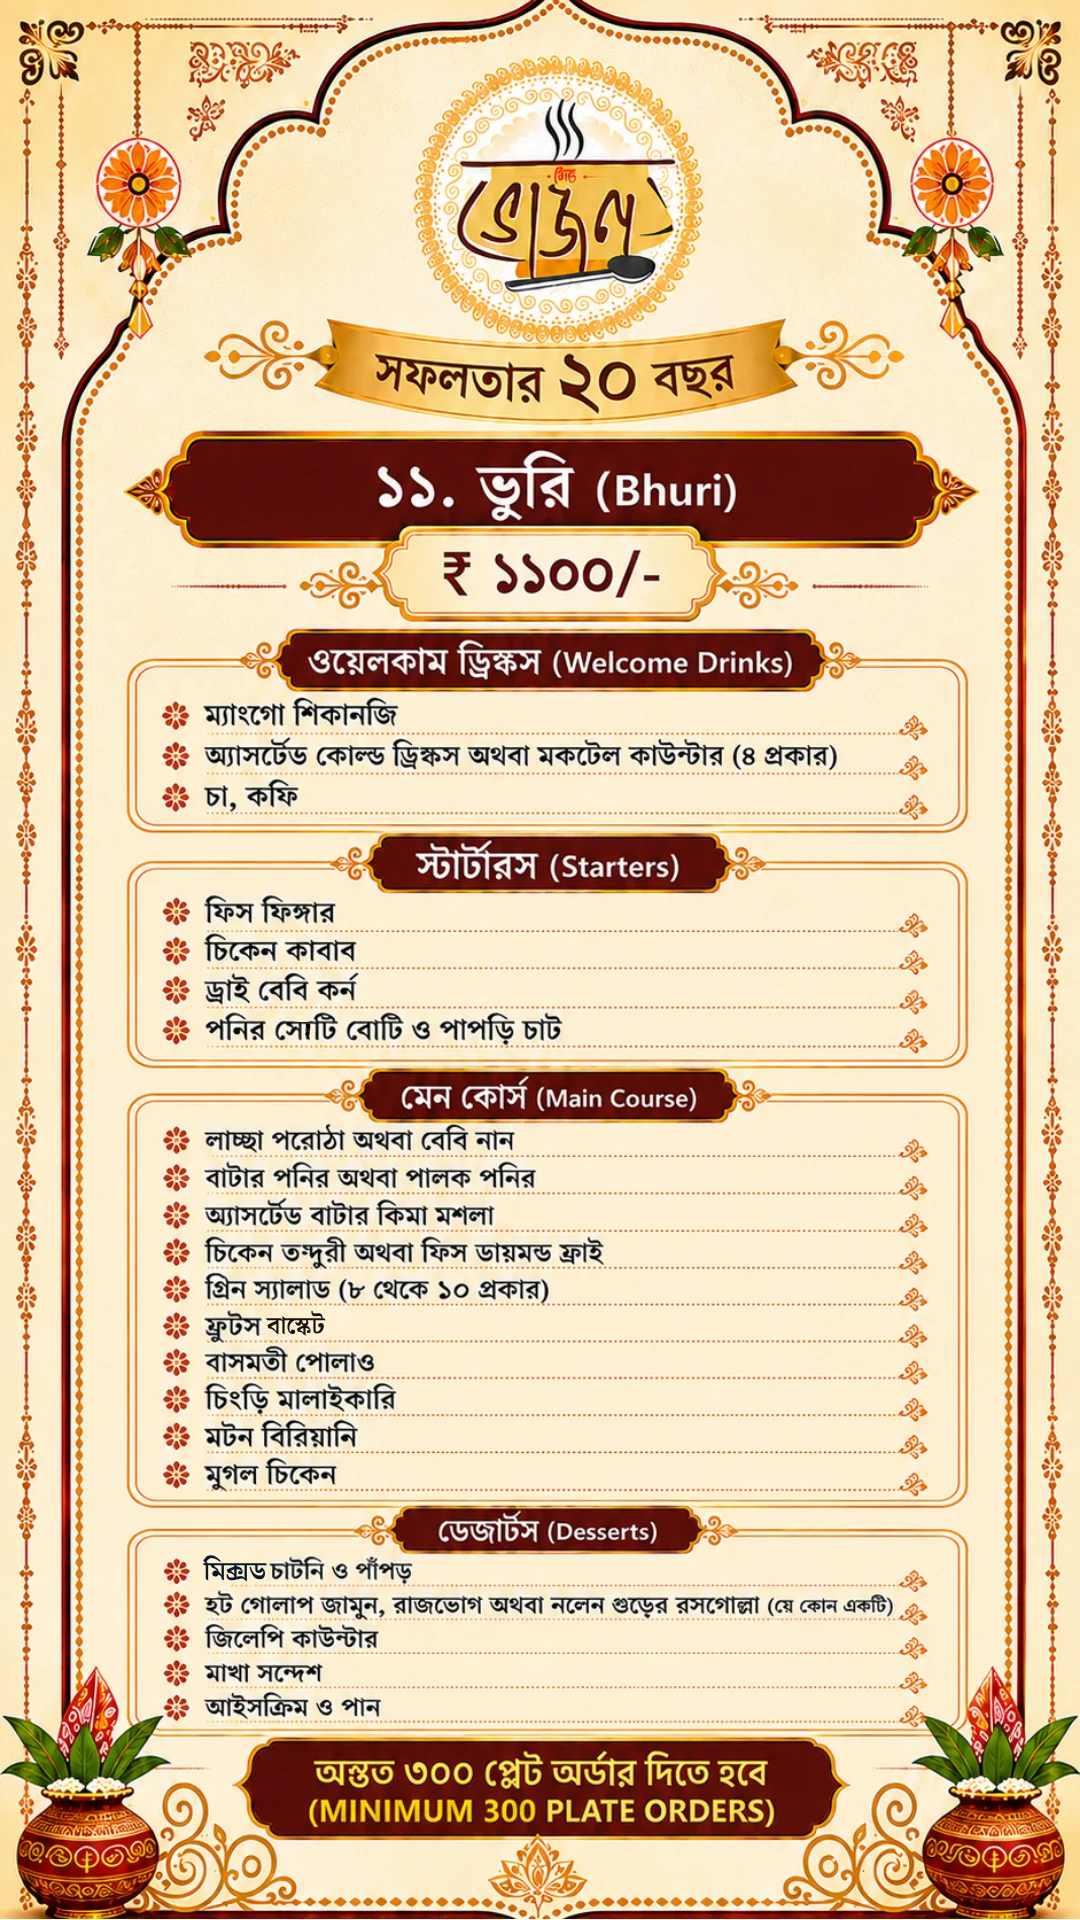 মিঃ
ভোজন
সফলতার ২০ বছর
১১. ভুরি (Bhuri)
₹ ১১০০/-
ওয়েলকাম ড্রিঙ্কস (Welcome Drinks)
ম্যাংগো শিকানজি
অ্যাসর্টেড কোল্ড ড্রিঙ্কস অথবা মকটেল কাউন্টার (৪ প্রকার)
চা, কফি
স্টার্টারস (Starters)
ফিস ফিঙ্গার
চিকেন কাবাব
ড্রাই বেবি কর্ন
পনির সোটি বোটি ও পাপড়ি চাট
মেন কোর্স (Main Course)
লাচ্ছা পরোঠা অথবা বেবি নান
বাটার পনির অথবা পালক পনির
অ্যাসর্টেড বাটার কিমা মশলা
চিকেন তন্দুরী অথবা ফিস ডায়মন্ড ফ্রাই
গ্রিন স্যালাড (৮ থেকে ১০ প্রকার)
ফ্রুটস বাস্কেট
বাসমতী পোলাও
চিংড়ি মালাইকারি
মটন বিরিয়ানি
মুগল চিকেন
ডেজার্টস (Desserts)
মিক্সড চাটনি ও পাঁপড়
হট গোলাপ জামুন, রাজভোগ অথবা নলেন গুড়ের রসগোল্লা (যে কোন একটি)
জিলেপি কাউন্টার
মাখা সন্দেশ
আইসক্রিম ও পান
অন্তত ৩০০ প্লেট অর্ডার দিতে হবে
(MINIMUM 300 PLATE ORDERS)